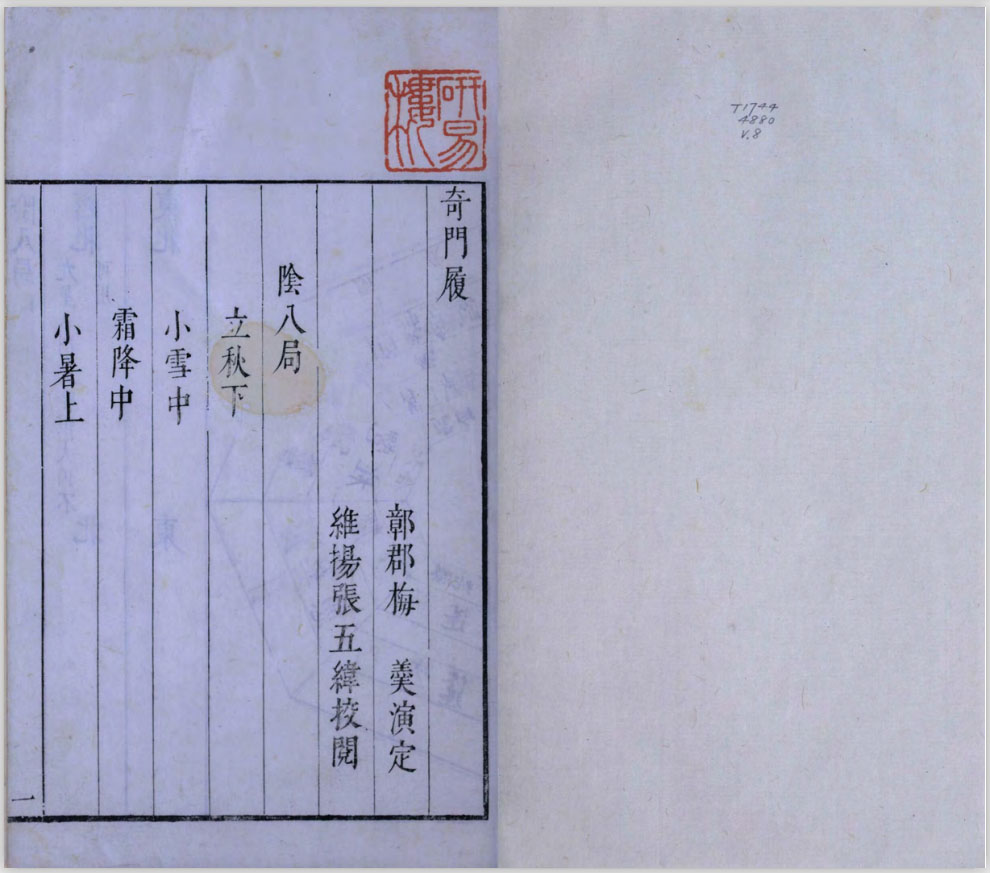 T1744
4880
V.8
研易樓
奇門履
鄣郡梅 羹演定
維揚張五緯挍閱
陰八局
立秋下
小雪中
霜降中
小暑上
一